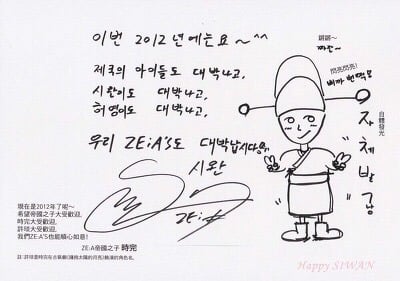 이번 2012년에는요~^^
제국의 아이들도 대박나고,
시완이도 대박나고,
허염이도 대박나고,
우리 ZE:A'S도 대박납시다!
시완
ZE:A
鏘鏘~
짜잔~
閃亮閃亮!
삐까 번쩍
自體發光
자체발광
現在是2012年了呢~
希望帝國之子大受歡迎,
時完大受歡迎,
許琰大受歡迎,
我們ZE:A'S也能順心如意!
ZE:A帝國之子 時完
註:許琰是時完在古裝劇《擁抱太陽的月亮》飾演的角色名。
Happy SIWAN